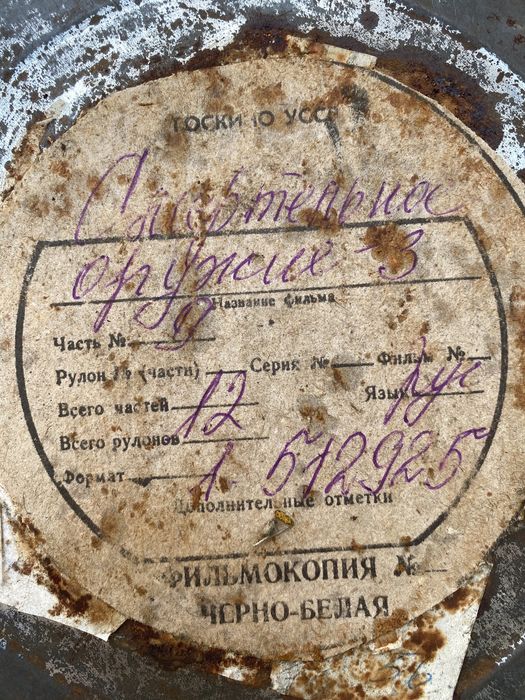 ГОСКИНО УССР
Смертельное
оружие-3
Название фильма
Часть № 9
Рулон № (части) Серия № Фильм №
Всего частей 12 Язык рус
Всего рулонов
Формат 1. 512925
Дополнительные отметки
ФИЛЬМОКОПИЯ №
ЧЕРНО-БЕЛАЯ